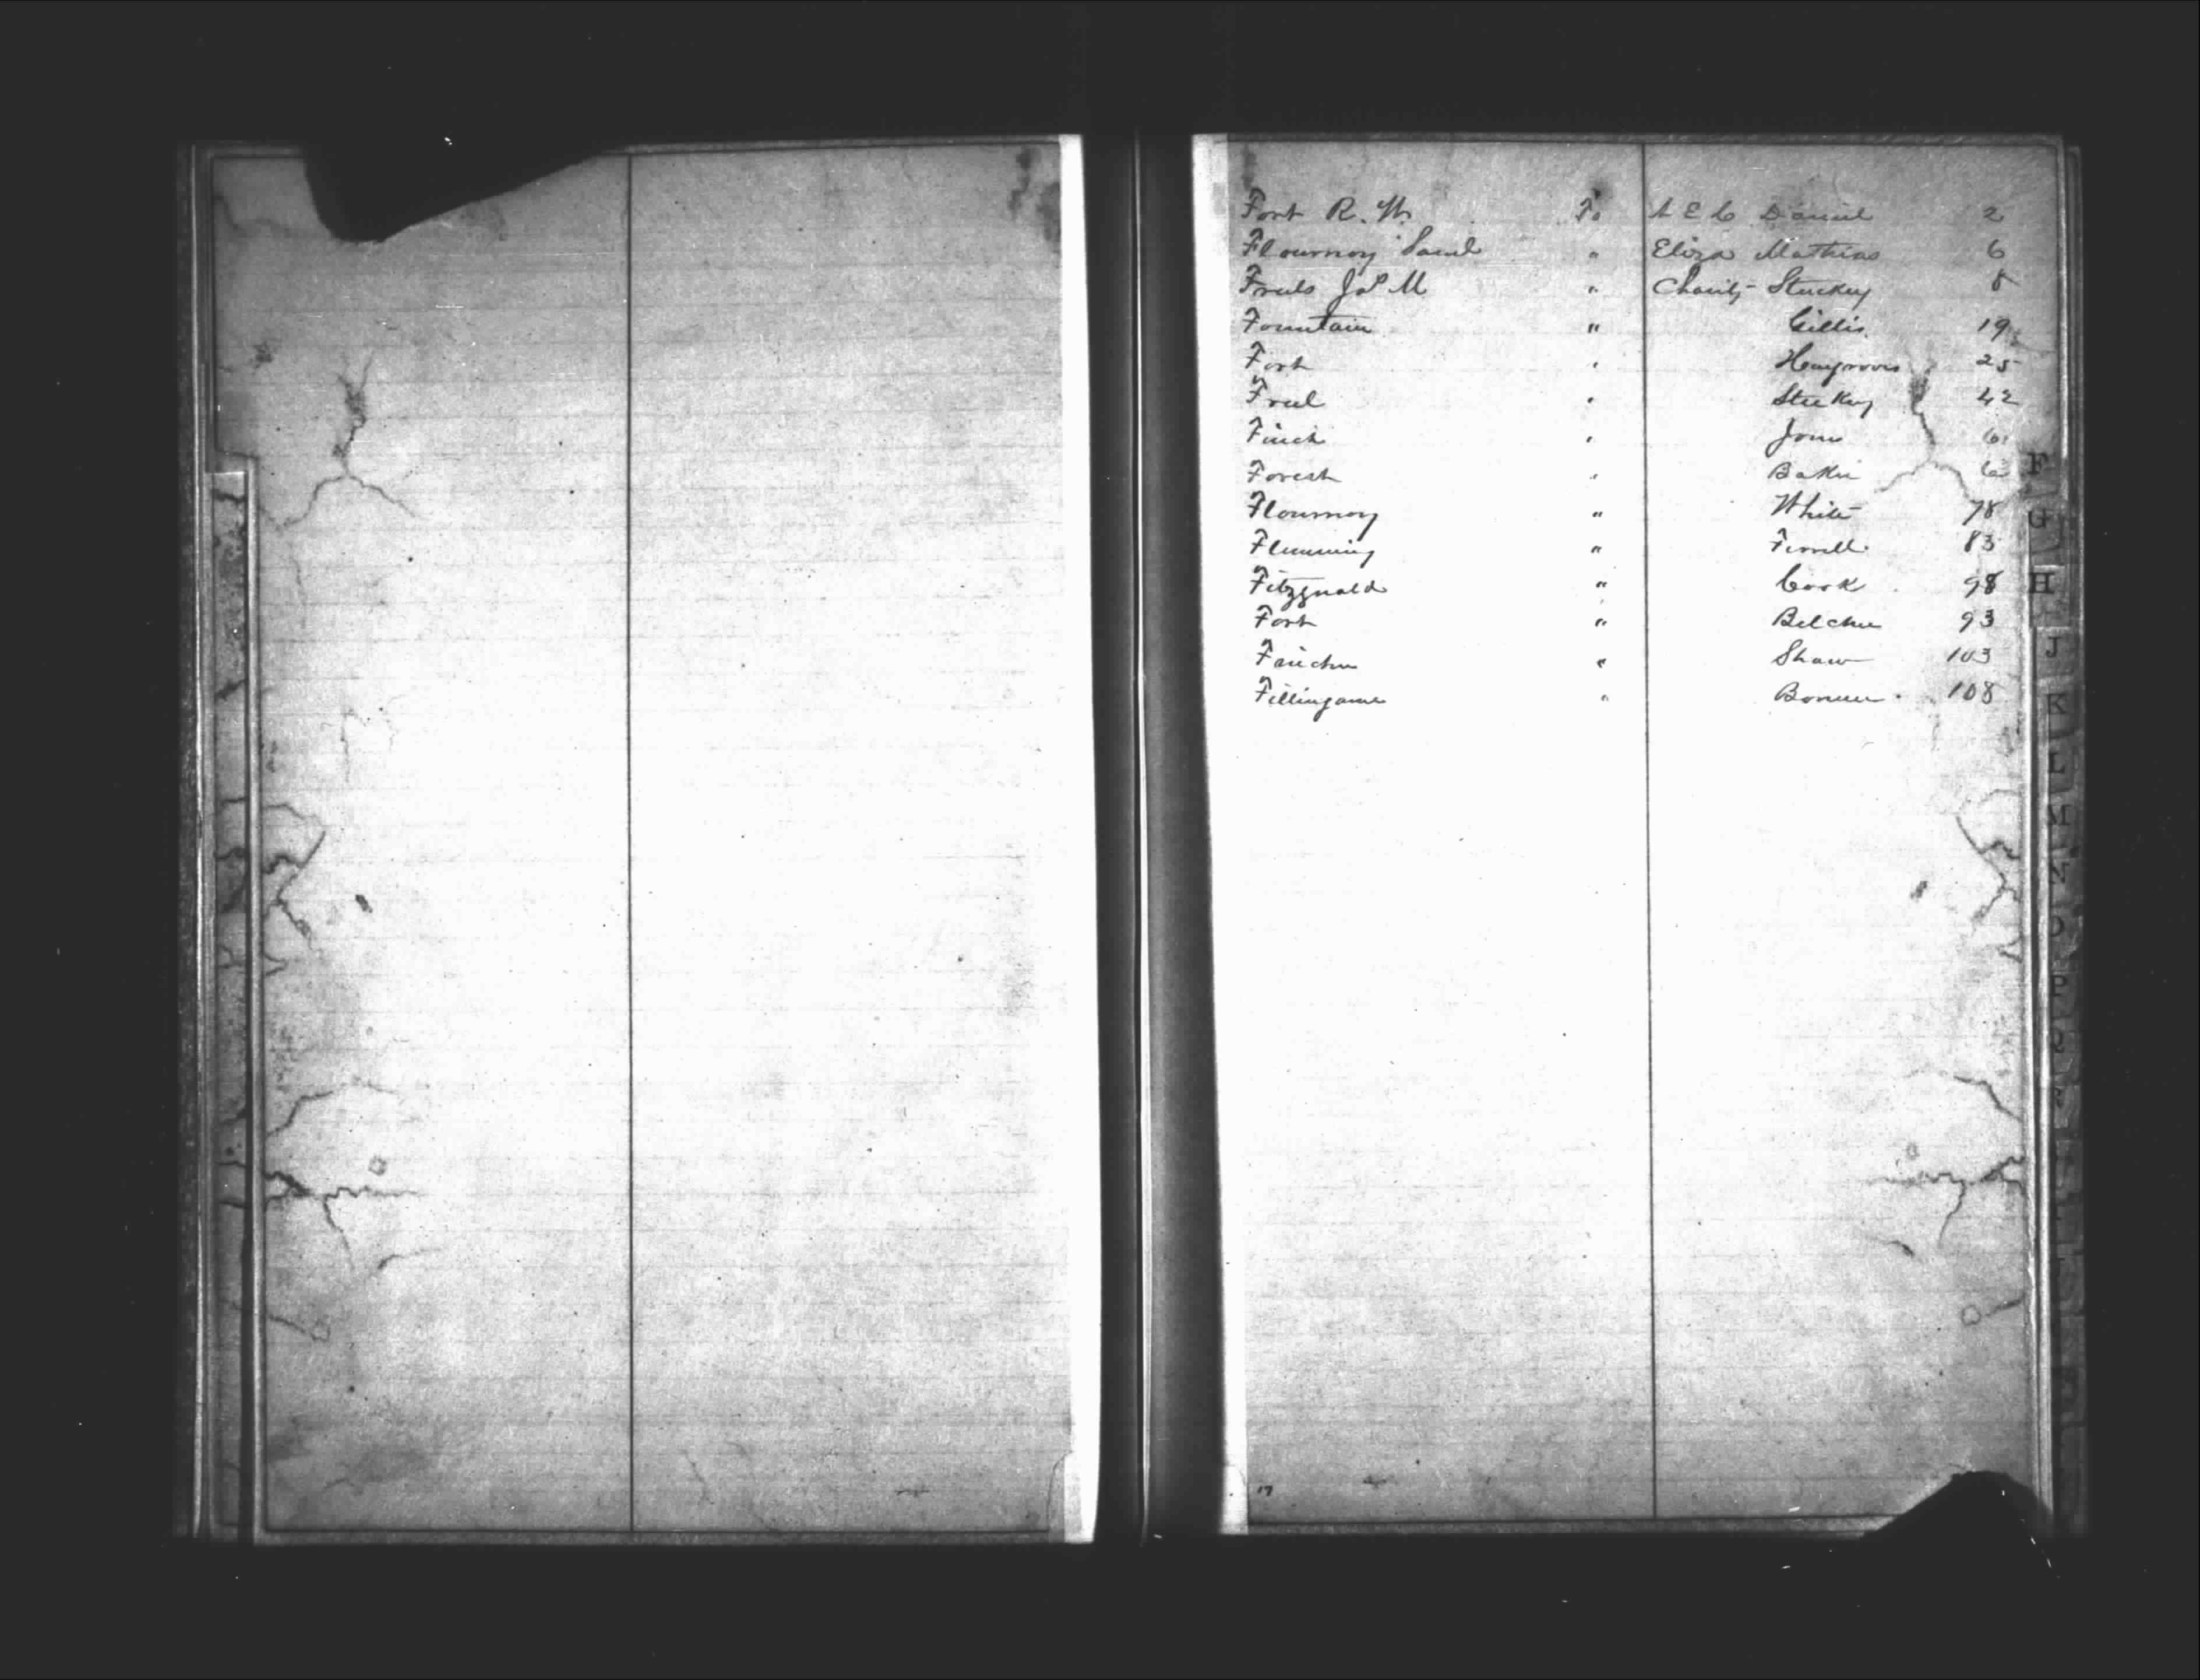 Fort R. W. To A E C Daniel 2
Flournoy Saml " Eliza Mathias 6
Jas M " Charity Stuckey 8
Fountain " Gillis 19
Fort " 25
" Stuckey 42
Finch "
Forest " Baker
Flournoy " White 78
Flemming " Ferrell 83
Fitzgerald " Cook 98
Fort " Belcher 93
" Shaw 103
Fillingame " Bonner 108
F
G
H
J
K
L
M
N
O
P
Q
R
17